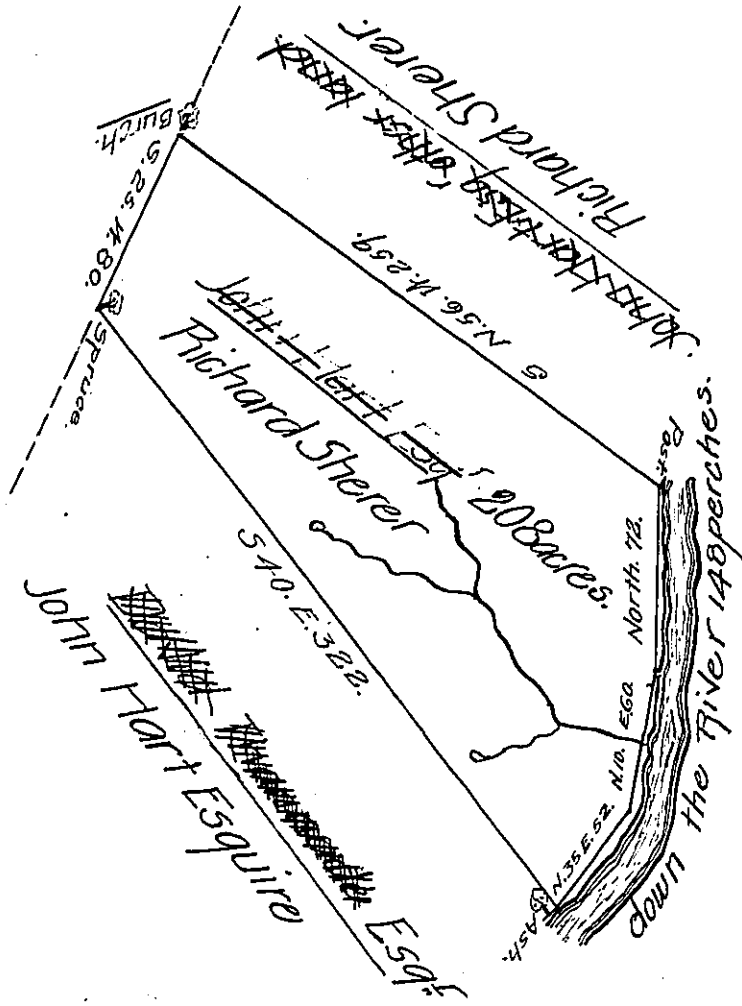 Richard Sherer.
John Hart Esq
Burch.
S. 25. W. 80.
Spruce.
S N. 56. W. 259.
John Hart Esqr
Richard Sherer
208 acres.
S 40. E. 322.
Post
North. 72.
N. 10. E. 60.
N. 35 E. 52.
Ash.
down the River 148 perches.
Esqr
John Hart Esquire